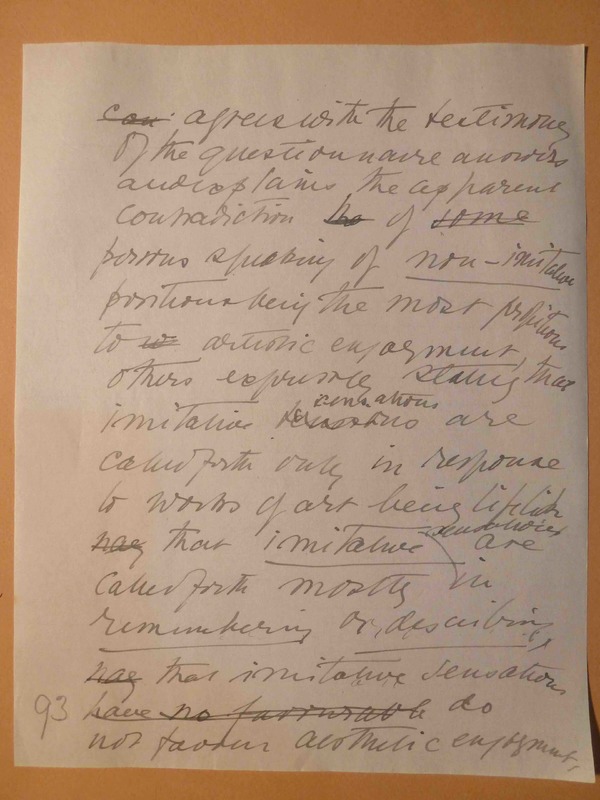 can agrees with the testimony
of the questionnaire answers
and explains the apparent
contradiction the of some
persons speaking of non-imitative
positions being the most propitious
to artistic enjoyment,
others expressly stating that
sensations
imitative tensions are
called forth only in response
to works of art being lifelike
sensations
nay that imitative are
called forth mostly in
remembering or describing,
nay that imitative sensations
93 have no favourable do
not favour aesthetic enjoyment,